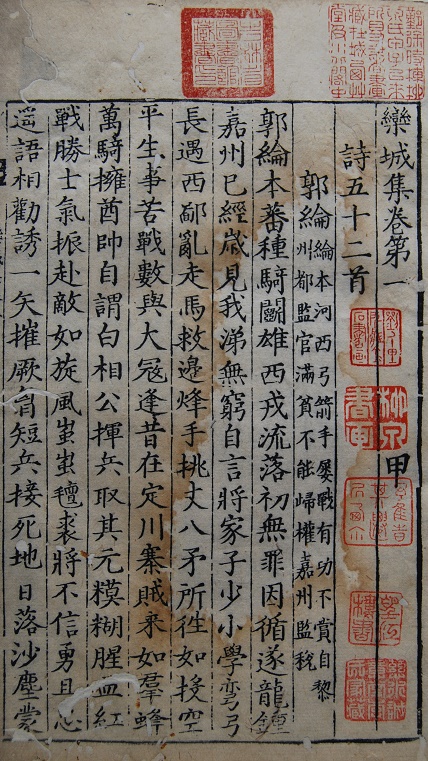 欒城集卷第一 甲
詩五十二首
郭綸 綸本河西弓箭手屢戰有功不賞自黎
州都監官滿貧不能歸權嘉州監稅
郭綸本蕃種騎鬬雄西戎流落初無罪因循遂龍鍾
嘉州已經歲見我涕無窮自言將家子少小學彎弓
長遇西鄙亂走馬救邊烽手挑丈八矛所徃如投空
平生事苦戰數與大寇逢昔在定川寨賊來如羣蜂
萬騎擁酋帥自謂白相公揮兵取其元模糊腥血紅
戰勝士氣振赴敵如旋風蚩蚩氊裘將不信勇且忠
遥語相勸誘一矢摧厥胷短兵接死地日落沙塵蒙